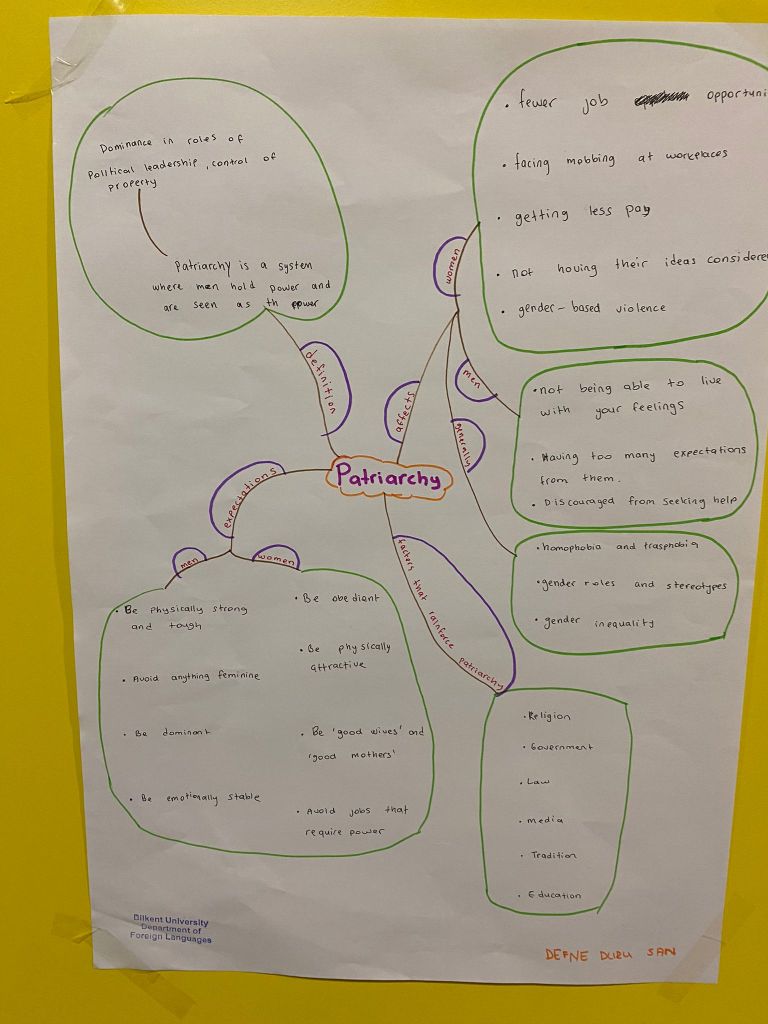 Dominance in roles of
Political leadership, control of
property
Patriarchy is a system
where men hold power and
are seen as th power
definition
fewer job opportuni
facing mobbing at workplaces
getting less pay
not having their ideas considere
gender-based violence
women
men
affects
generally
not being able to live
with your feelings
Having too many expectations
from them.
Discouraged from seeking help
Patriarchy
homophobia and trasphobia
gender roles and stereotypes
gender inequality
expectations
men
women
Be physically strong
and tough
Avoid anything feminine
Be dominant
Be emotionally stable
Be obedient
Be physically
attractive
Be 'good wives' and
'good mothers'
Avoid jobs that
require power
factors that rainforce patriarchy
Religion
Government
Law
media
Tradition
Education
Bilkent University
Department of
Foreign Languages
DEFNE DURU SAN